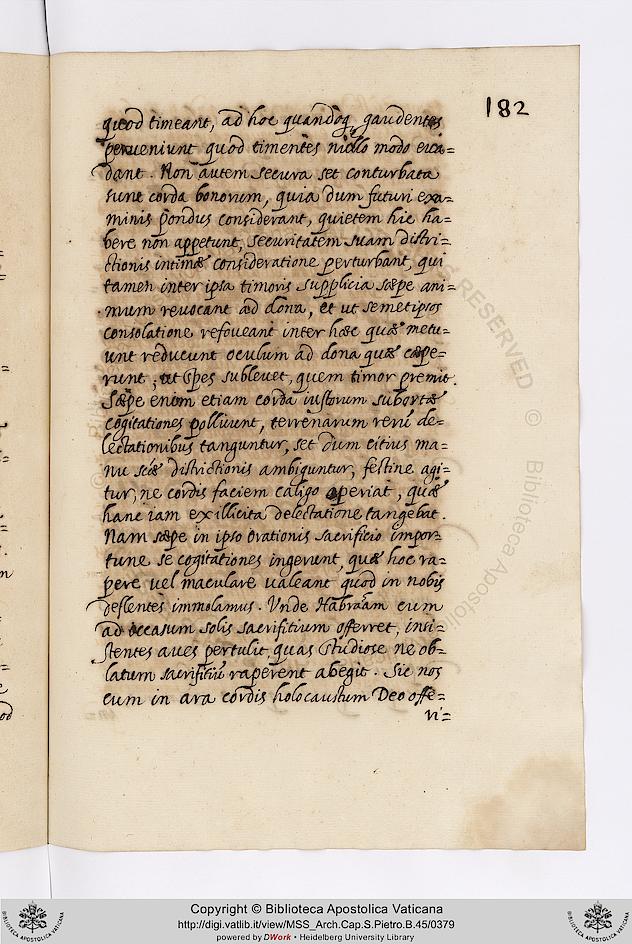 182
quod timeant, ad hoc quandoq. gaudentes
perueniunt quod timentes nullo modo eua=
dant. Non autem secura set conturbata
sunt corda bonorum, quia dum futuri exa=
minis pondus considerant, quietem hic ha=
bere non appetunt, securitatem suam distri=
ctionis intimæ consideratione perturbant, qui
tamen inter ipsa timoris supplicia sæpe ani=
mum reuocant ad dona, et ut semetipsos
consolatione refoueant inter hæc quæ metu=
unt reducunt oculum ad dona quæ cæpe=
runt; ut spes subleuet, quem timor premit.
Sæpe enim etiam corda iustorum subortæ
cogitationes polluunt, terrenarum rerū de=
lectationibus tanguntur, set dum citius ma=
nu scæ districtionis ambiguntur, festine agi=
tur, ne cordis faciem caligo operiat, quæ
hanc iam ex illicita delectatione tangebat.
Nam sæpe in ipso orationis sacrificio impor=
tune se cogitationes ingerunt, quæ hoc ra=
pere uel maculare ualeant quod in nobis
deflentes immolamus. Vnde Habraam cum
ad occasum solis sacrifitium offerret, insi=
stentes aues pertulit, quas studiose ne ob=
latum sacrifitiū raperent abegit. Sic nos
cum in ara cordis holocaustum Deo offe=
ri=
RESERVED © Biblioteca Apostoli
Copyright © Biblioteca Apostolica Vaticana
http://digi.vatlib.it/view/MSS_Arch.Cap.S.Pietro.B.45/0379
powered by DWork • Heidelberg University Library